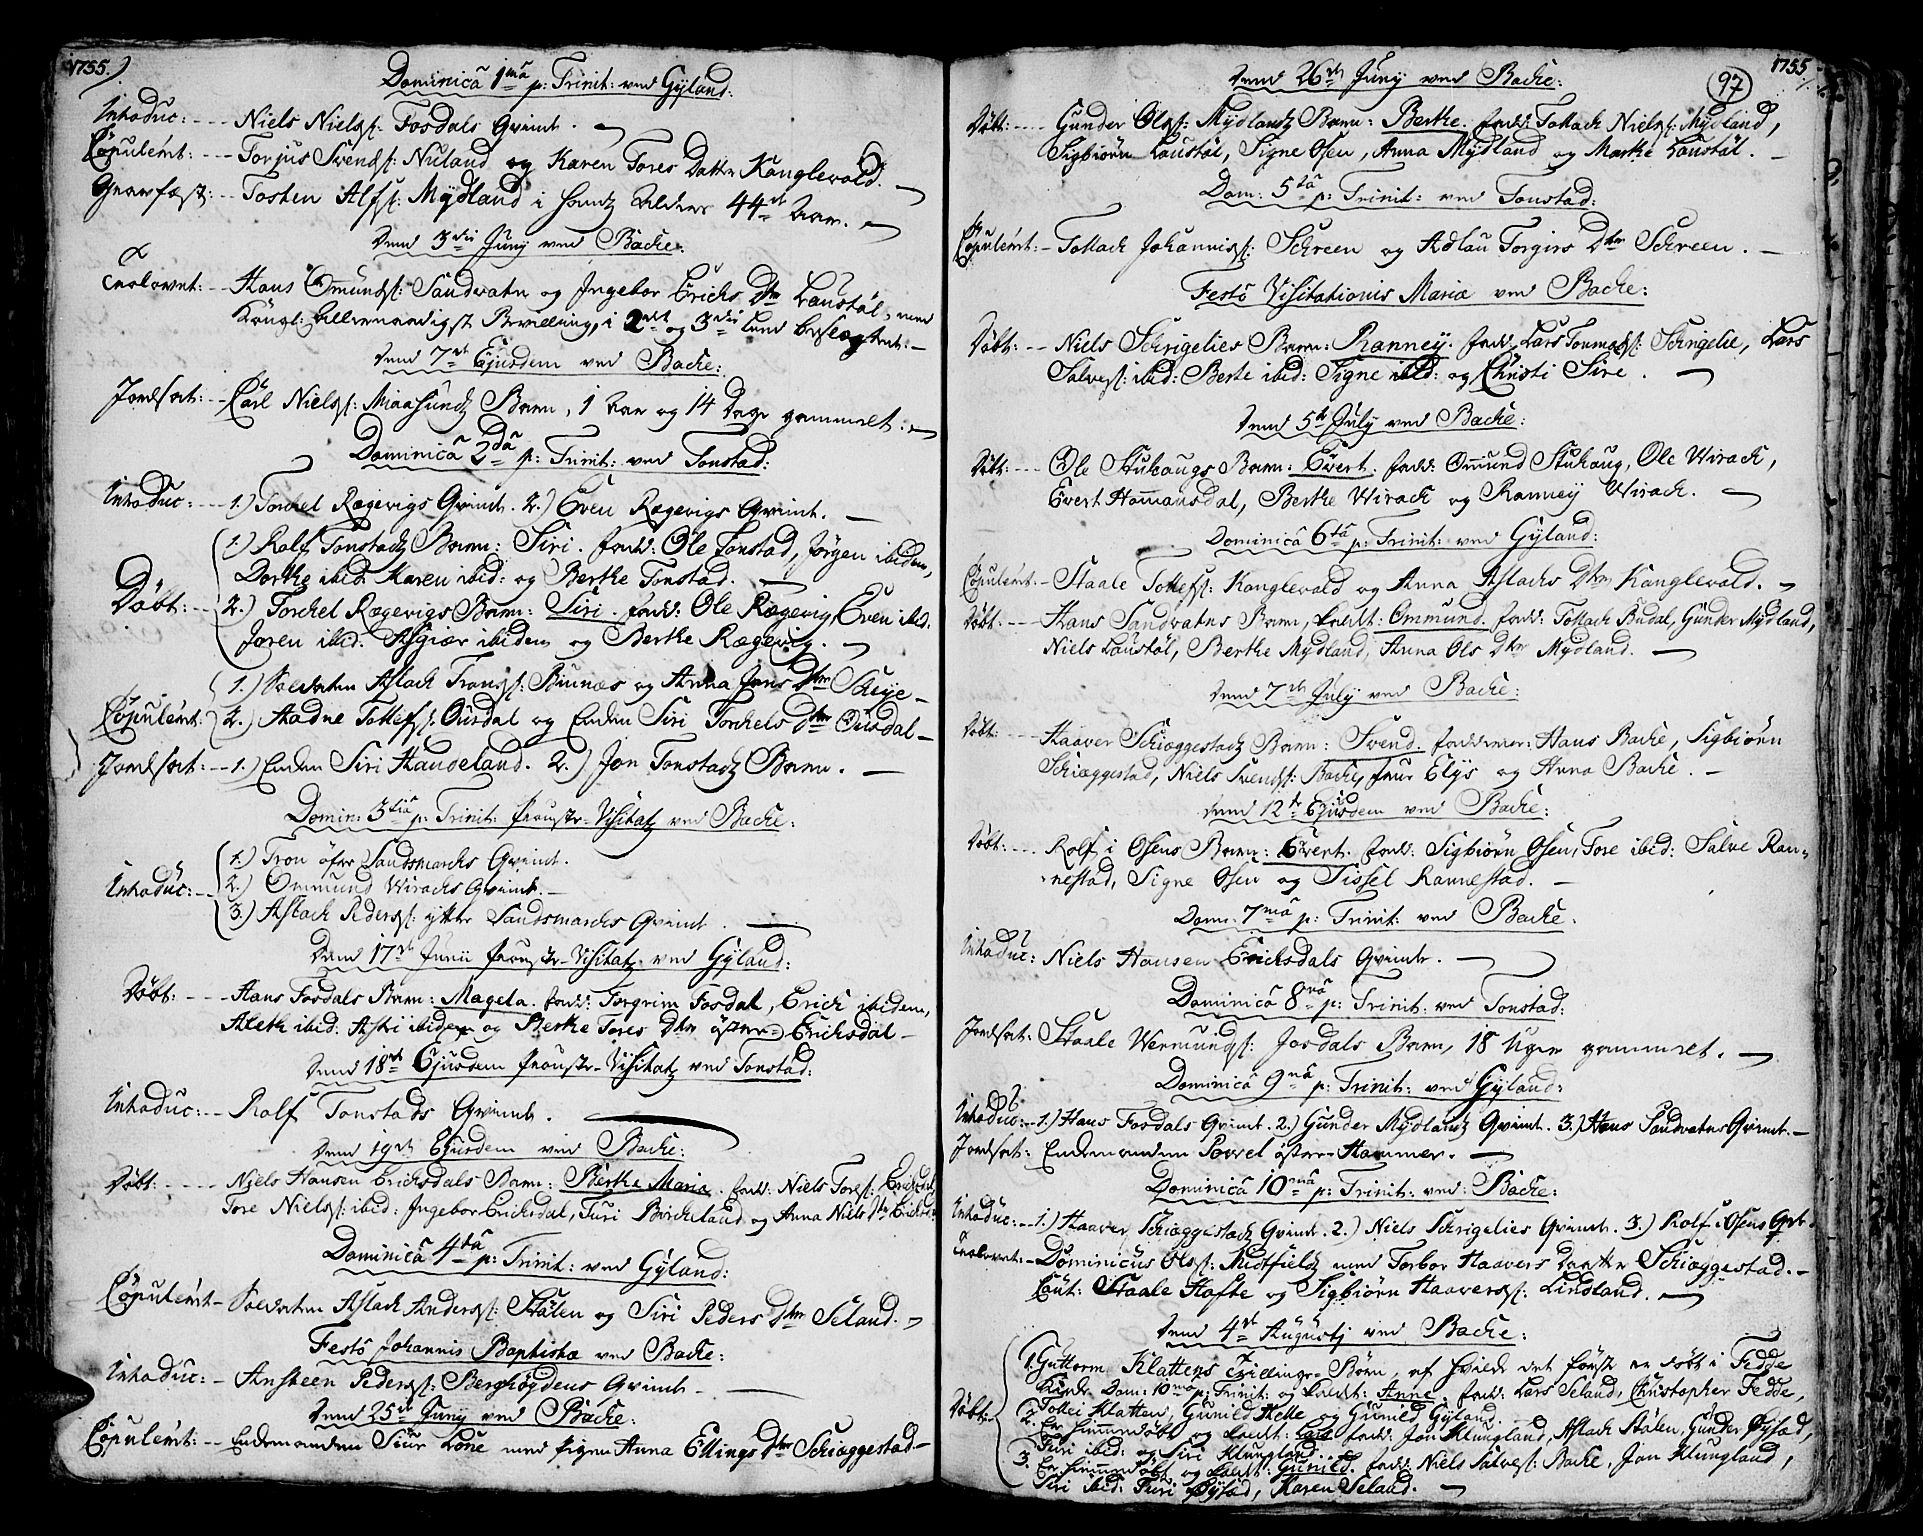 1755.
Dominicâ 1mâ p: Trinit: ved Gyland:
Introduc: --- Niels Nielsₛ: Fosdals Qvinde.
Copuleret: --- Torjus Svendₛ: Nuland og Karen Tores Datter Kanglevold.
Graverfæst: -- Tosten Alfₛ: Mydland i sandz Alders 44 Aar.
Dend 3die Juny ved Backe.
Trolovet: -- Hans Omundₛ: Sandvatn og Ingebor Erichs Dtr Loustøl, med
Kongl: allernaadigst Bevilling, i 2det og 3die Leed beslægtet.
Dend 7de Ejusdem ved Backe:
Jordsat: -- Carl Nielsₛ: Maasundz Barn, 1 Aar og 14 Dage gammelt.
Dominicâ 2dâ p: Trinit: ved Tonstad:
Introduc: --- 1.) Torckel Rægevigs Qvinde. 2.) Even Rægevigs Qvinde.
1.) Rolf Tonstadz Barn: Siri. fadd: Ole Tonstad, Jørgen ibidem,
Dorthe ibid: Karen ibid: og Berthe Tonstad.
Døbt: -- 2.) Torckel Rægevigs Barn: Siri. fadd: Ole Rægevig, Even ibid.
Joren ibid. Asgiær ibidem og Berthe Rægevig.
1.) Soldaten Aslach Tronsₛ: Biunes og Anna Jens Dtr Skeye
Copuleret: 2.) Aadne Tollefₛ: Ousdal og Enken Siri Torckels dtr Ousdal
Jordsat: -- 1.) Enken Siri Haugeland. 2.) Jon Tonstadz Barn.
Domin: 3tiâ p: Trinit: Provste-Visitatz ved Backe:
1.) Tron øfre Sandsmarcks Qvinde.
Introduc: -- 2.) Ommund Wiracks Qvinde.
3.) Aslach Pedersₛ: ytter Sandsmarcks Qvinde.
Dend 17de Junii Provste-Visitatz ved Gyland:
Døbt: --- Hans Fosdals Barn: Magela. fadd: Torgrim Fosdal, Erick ibidem,
Aleth ibid: Astri ibidem og Berthe Tores Dtr øster Ericksdal
Dend 18de Ejusdem Provste-Visitatz ved Tonstad:
Introduc: -- Rolf Tonstads Qvinde.
Dend 19de Ejusdem ved Backe:
Døbt: ---- Niels Hansen Ericksdals Barn: Berthe Maria. fadd: Niels Toresₛ: Ericksdal
Tore Nielsₛ: ibid: Ingebor Ericksdal, Turi Birckeland og Anna Niels Dtr Ericksd
Dominicâ 4tâ p: Trinit: ved Gyland:
Copuleret - Soldaten Aslach Andersₛ: Stølen og Siri Peders Dtr Seland.
Festô Johannis Baptistæ ved Backe:
Introduc: - Ansteen Pedersₛ: Berghøydens Qvinde
Dend 25de Juny ved Backe:
Copuleret: -- Enckemanden Siur Lone med Pigen Anna Ellings Dtr Schieggestad
1755
97
Dend 26de Juny ved Backe:
Døbt: --- Gunder Olsₛ: Mydlandz Barn: Berthe. fadd: Tollach Nielsₛ: Mydland,
Sigbiørn Loustøl, Signe Osen, Anna Mydland og Marthe Loustøl.
Dom: 5tâ p: Trinit: ved Tonstad:
Copuleret: - Tollach Johannisₛ: Schreen og Adlau Torgirs Dtr Schreen.
Festô Visitationis Mariæ ved Backe:
Døbt: -- Niels Schrigelies Barn: Ranney. fadd: Lars Tommesₛ: Schrigelie, Lars
Salvesₛ: ibid: Berte ibid: Signe ibid: og Christi Sire.
Dend 5te July ved Backe:
Døbt: --- Ole Stuhaugs Barn: Evert. fadd: Ommund Stuhaug, Ole Wirack,
Evert Hommansdal, Berthe Wirack og Ranney Wirack.
Dominicâ 6tâ p: Trinit: ved Gyland:
Copuleret: - Staale Tollefₛ: Kanglevold og Anna Aslachs Dtr Kanglevold.
Døbt: --- Hans Sandvatns Barn, kaldt: Ommund. fadd: Tollach Budal, Gunder Mydland,
Niels Loustøl, Berthe Mydland, Anna Ols Dtr Mydland.
Dend 7de July ved Backe:
Døbt: --- Haaver Schieggestadz Barn: Svend. fadderne: Hans Backe, Sigbiørn
Schieggestad, Niels Svendₛ: Backe, Frue Elys og Anna Backe.
Dend 12te Ejusdem ved Backe:
Døbt: --- Rolf i Osens Barn: Evert. fadd: Sigbiørn Osen, Tore ibid: Salve Ran-
nestad, Signe Osen og Sissel Rannestad.
Dom: 7mâ p: Trinit: ved Backe.
Introduc: Niels Hansen Ericksdals Qvinde.
Dominicâ 8vâ p: Trinit: ved Tonstad:
Jordsat: Staale Wermundₛ: Josdals Barn, 18 Uger gammelt.
Dominicâ 9nâ p: Trinit: ved Gyland:
Introduc: - 1.) Hans Fosdals Qvinde. 2.) Gunder Mydlandz Qvinde. 3.) Hans Sandvatns Qvinde.
Jordsat: Enckemanden Povel øster-Hammer.
Dominicâ 10mâ p: Trinit: ved: Backe:
Introduc: - 1.) Haaver Schieggestadz Qvinde. 2.) Niels Schrigelies Qvinde. 3.) Rolf i Osens Qvi
Trolovet: - Dominicus Olsₛ: Midtfield med Torbor Haavers Daatter Schieggestad.
Caut: Staale Hafte og Sigbiørn Haaversₛ: Lindland.
Dend 4de Augustj ved Backe:
1. Guttorm Klattens Trillinge-Børn, af hvilcke det første er døbt i Fedde
Kircke Dom: 10mâ p: Trinit: og kaldet: Anne. fadd: Lars Seland, Christopher Fedde,
Døbt: Tollei Klatten, Gunild Hette og Gunild Gyland.
2. Er hiemmedøbt og kaldet: Lars fadd: Jon Klungland, Aslach Stølen, Gunder Øysæd,
Turi ibid: og Siri Klungland.
3. Er hiemmedøbt og kaldet: Gunild. fadd: Niels Salvesₛ: Backe, Jon Klungland,
Siri ibid: Turi Øysæd, Karen Seland.